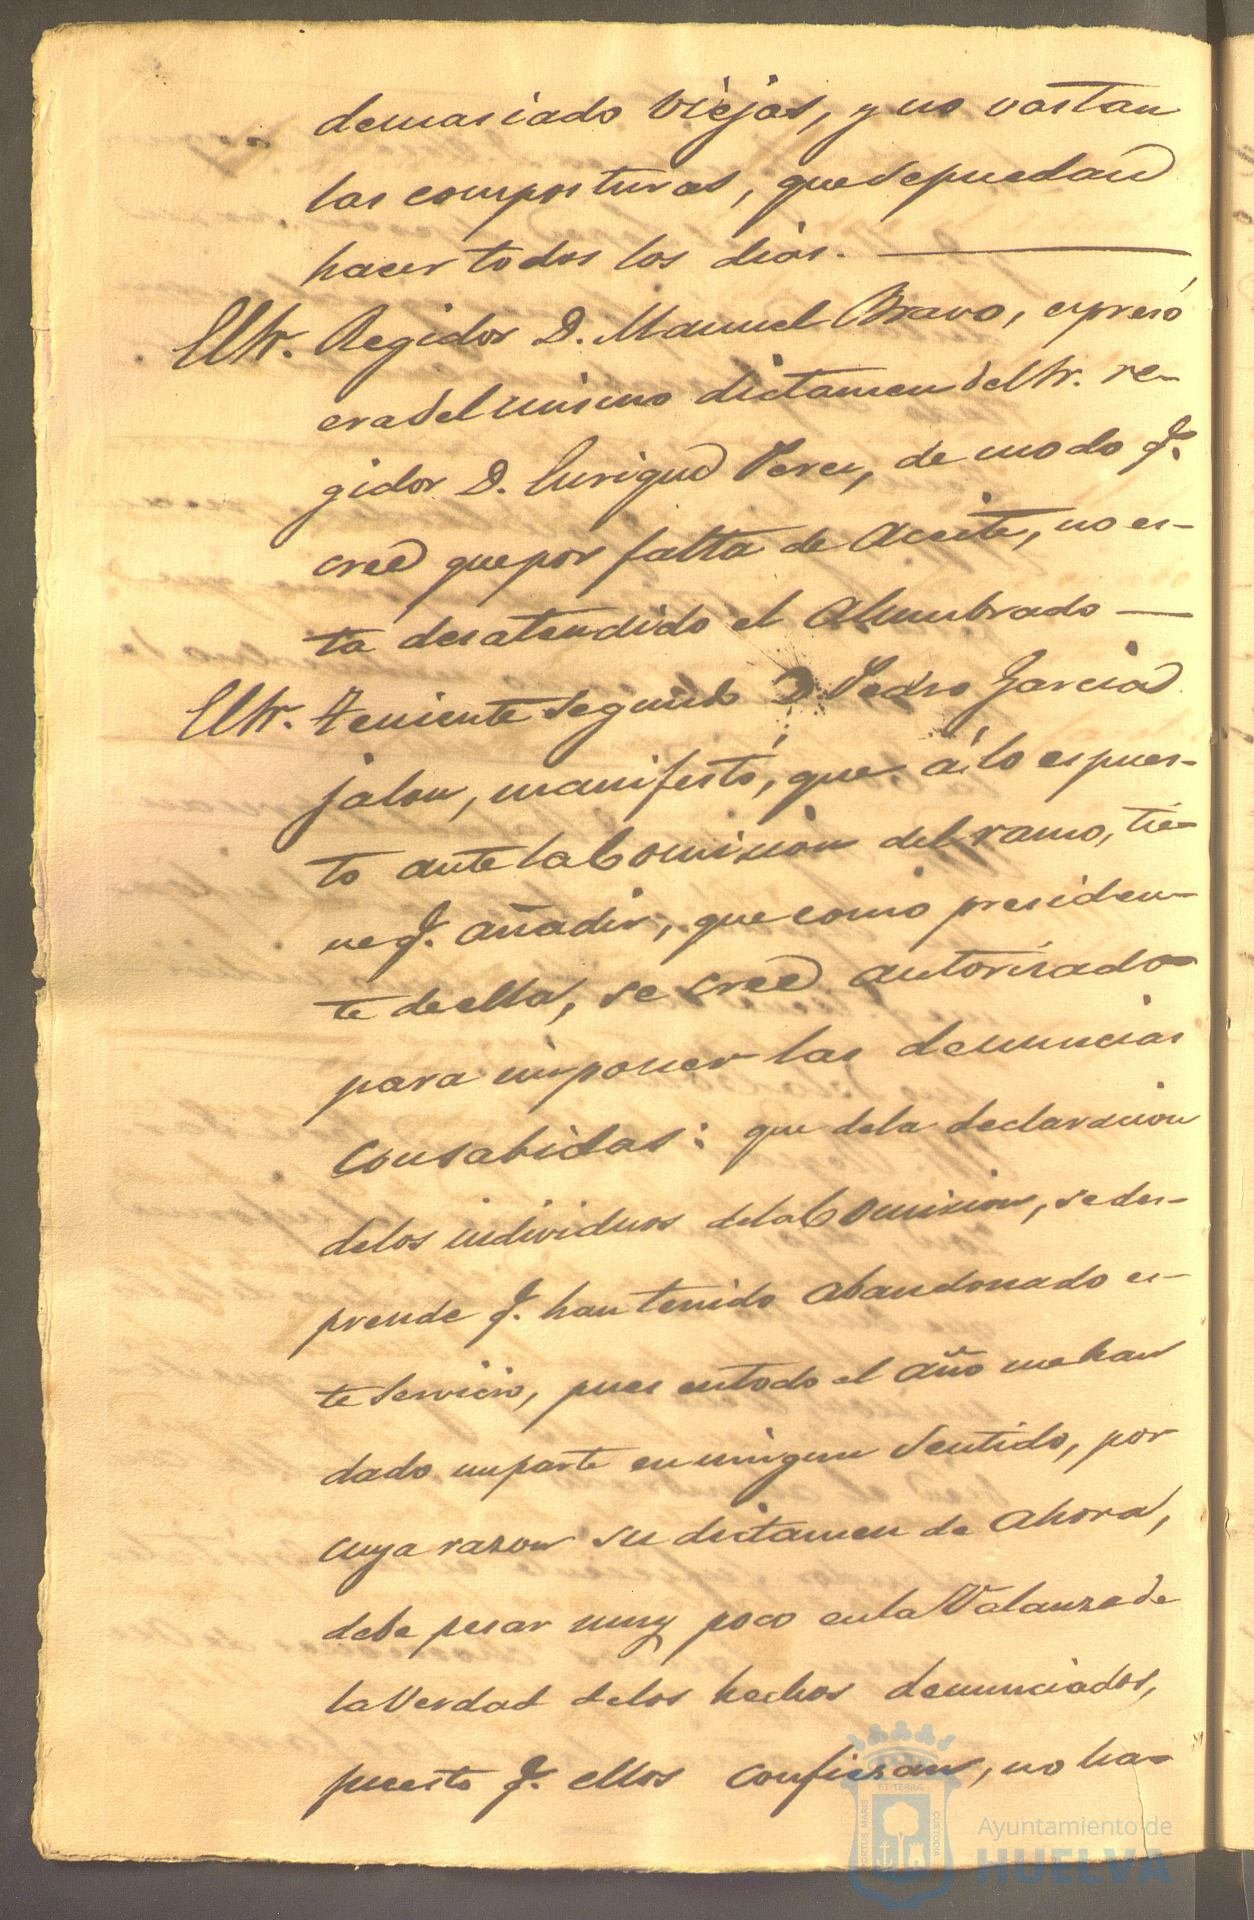 demasiado viejas, y no vastan
las composturas, que se puedan
hacer todos los dias. —
El Sr. Regidor D. Manuel Bravo, espresó
era del mismo dictamen del Sr. re-
gidor D. Enrique Perez, de modo q.
cree que por falta de Aceite, no es-
ta desatendido el Alumbrado —
El Sr. Teniente Segundo D. Pedro Garcia
jalon, manifestó, que á lo espues-
to ante la Comision del ramo, tie-
ne q. añadir, que como presiden-
te de ella, se cree autorisado
para imponer las denuncias
Consabidas: que de la declaracion
de los individuos de la Comision, se des-
prende q. han tenido abandonado es-
te Servicio, pues en todo el año me han
dado un parte en ningun Sentido, por
cuya razon su dictamen de Ahora,
debe pesar muy poco en la Valanza de
la Verdad de los hechos denunciados,
puesto q. ellos confiesan, no ha-
PORTUS MARIS ET TERRAE CUSTODIA
Ayuntamiento de
HUELVA